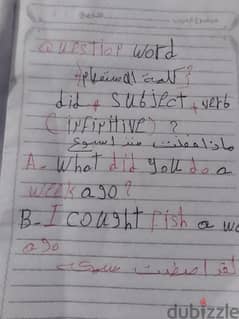 Question word
كلمة الاستفهام؟
did + subject + verb
(infinitive) ?
ماذا فعلت منذ اسبوع
A- What did you do a
week ago?
B- I cought fish a we
ago
لقد اصطدت سمك
dubizzle